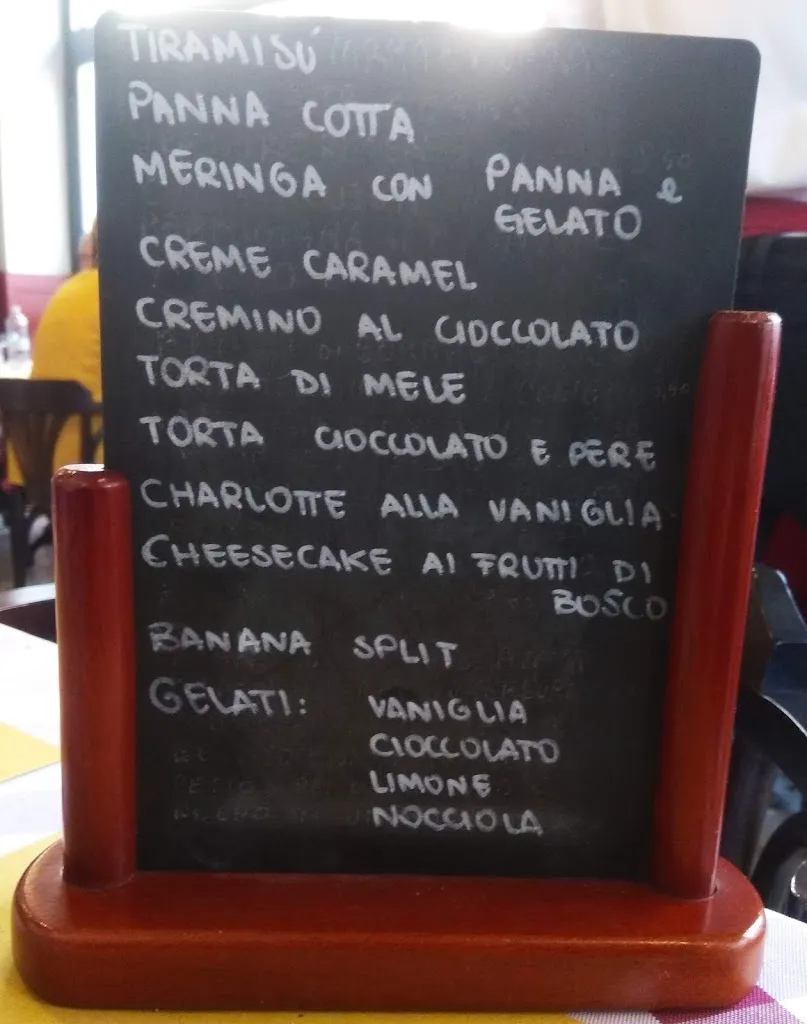 TIRAMISÚ
PANNA COTTA
MERINGA CON PANNA e
GELATO
CREME CARAMEL
CREMINO AL CIOCCOLATO
TORTA DI MELE
TORTA CIOCCOLATO E PERE
CHARLOTTE ALLA VANIGLIA
CHEESECAKE AI FRUTTI DI
BOSCO
BANANA SPLIT
GELATI: VANIGLIA
CIOCCOLATO
LIMONE
NOCCIOLA